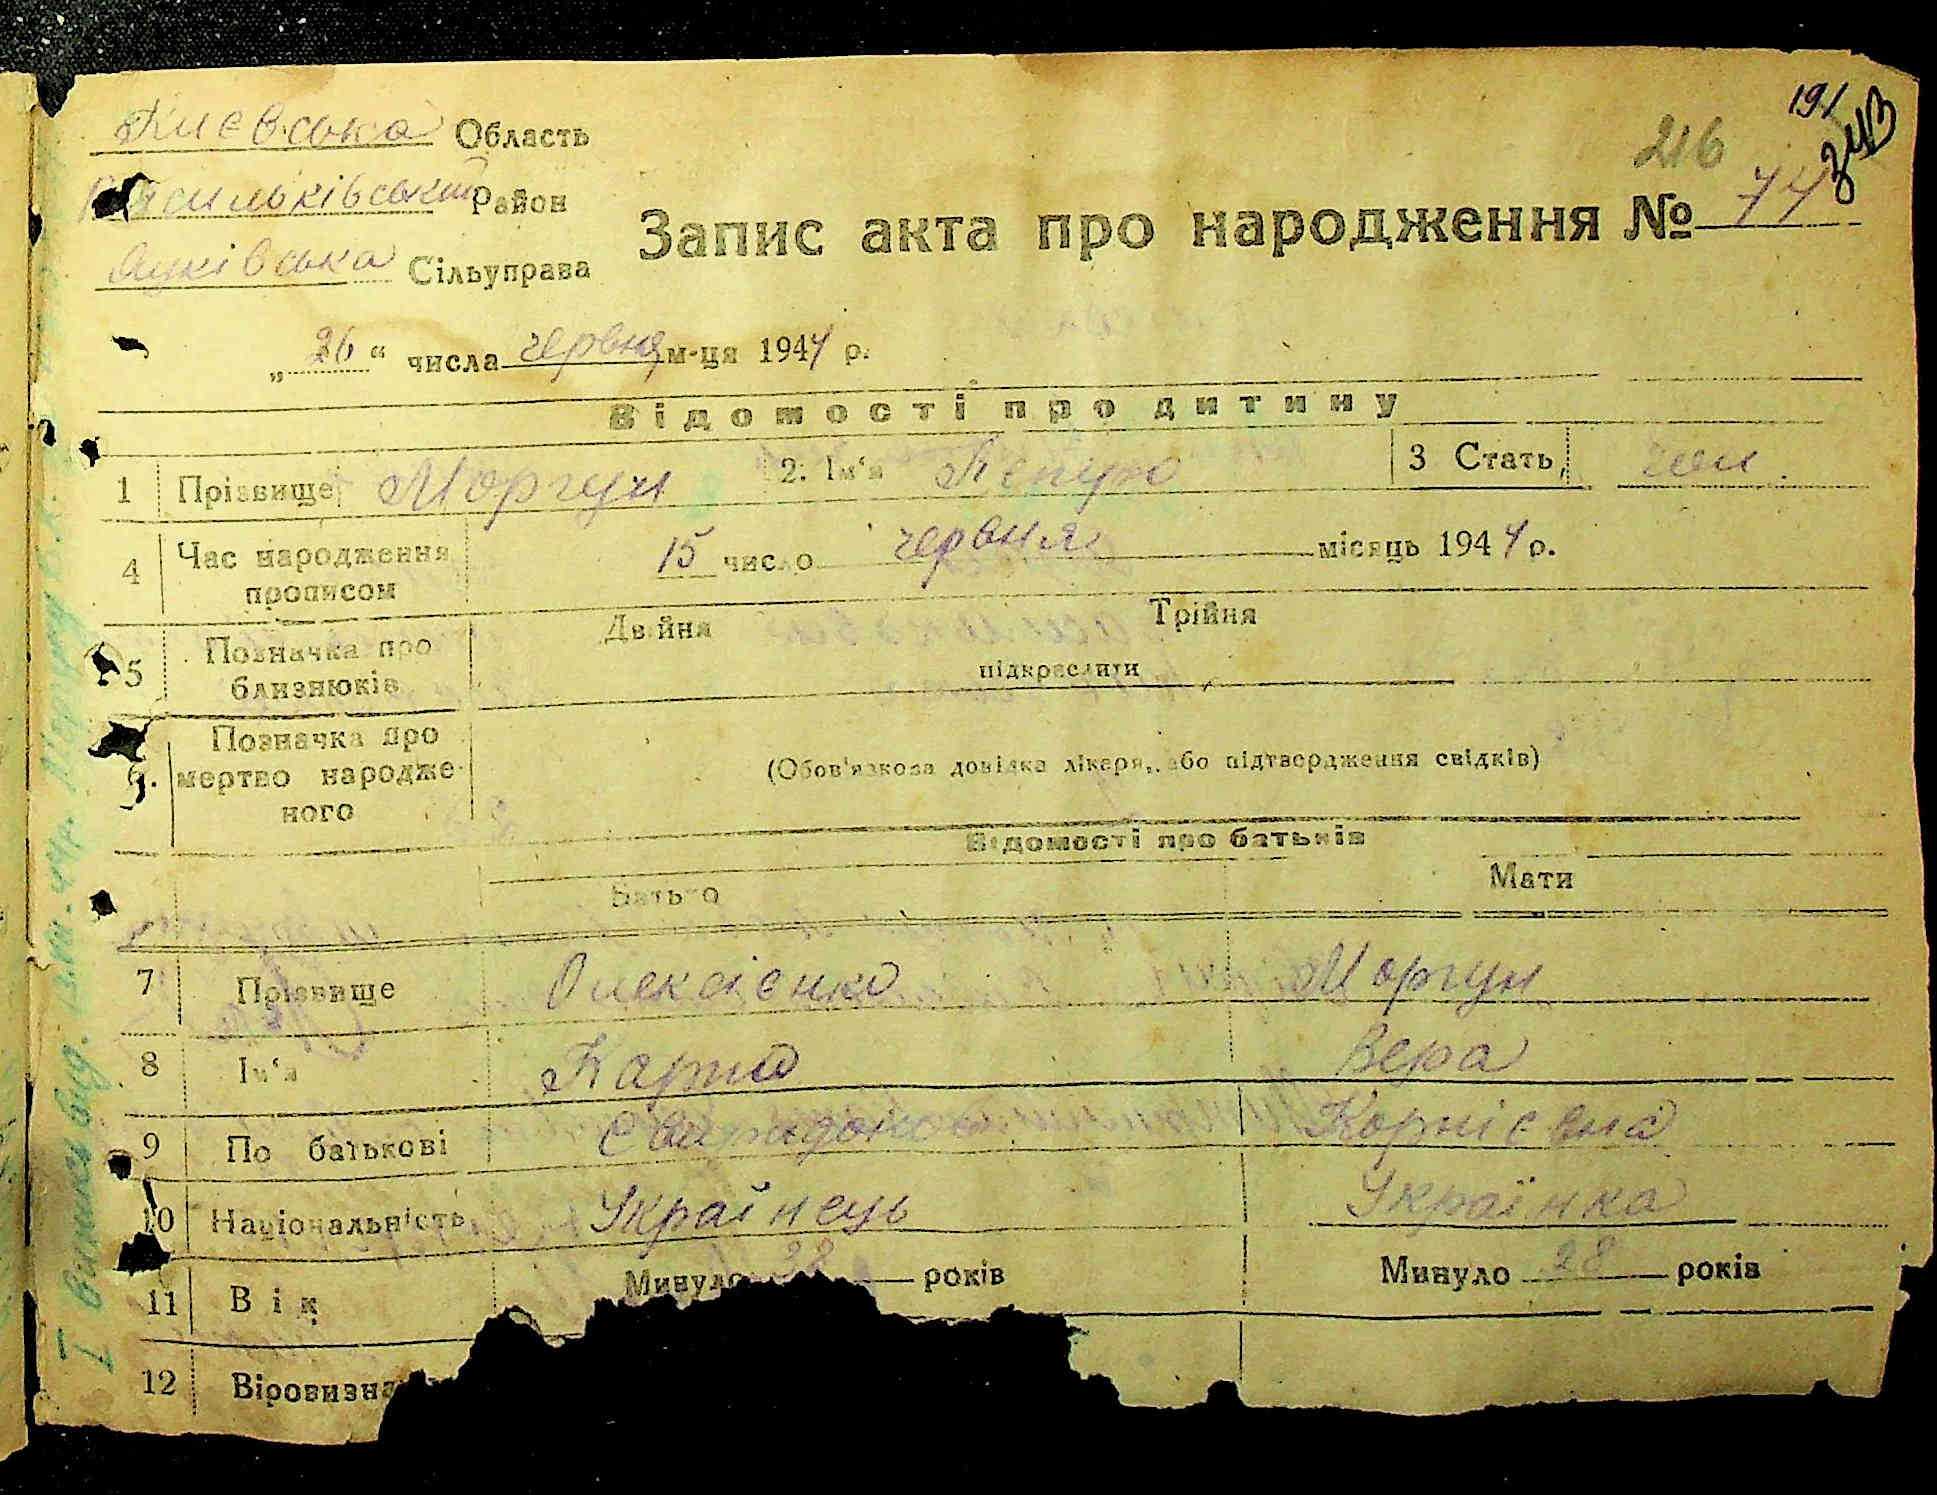 Києвська Область
191
343
216
Васильківський Район
Запис акта про народження № 74
Сільуправа
„26“ числа червня м-ця 1944 р.
Відомості про дитину
1 Прізвище Моргун 2. Ім‘я 3 Стать чол.
4 Час народження прописом 15 число червня місяць 1944 р.
5 Позначка про близнюків Двійня Трійня
підкреслити
6. Позначка про мертво народженого (Обов'язкова довідка лікаря, або підтвердження свідків)
Відомості про батьків
Батько Мати
7 Прізвище Олексієнко Моргун
8 Ім‘я Вера
9 По батькові Корнієвна
10 Національність Українець Українка
11 Вік Минуло років Минуло 28 років
12